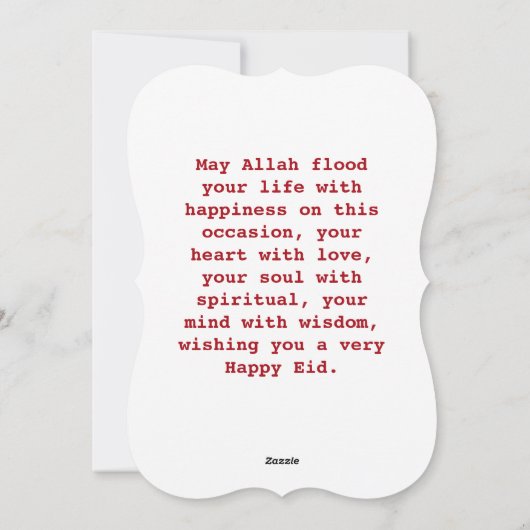 May Allah flood
your life with
happiness on this
occasion, your
heart with love,
your soul with
spiritual, your
mind with wisdom,
wishing you a very
Happy Eid.
Zazzle